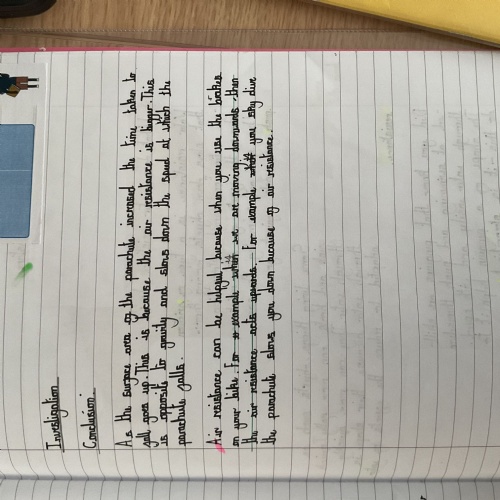 Investigation
Conclusion
As the surface area of the parachute increased the time taken to
fall goes up. This is because the air resistance is bigger. This
is opposite to gravity and slows down the speed at which the
parachute falls.
Air resistance can be helpful because when you use the brakes
on your bike. For example when we are moving downwards then
the air resistance acts upwards. For example you sky dive
the parachute slows you down because of air resistance.